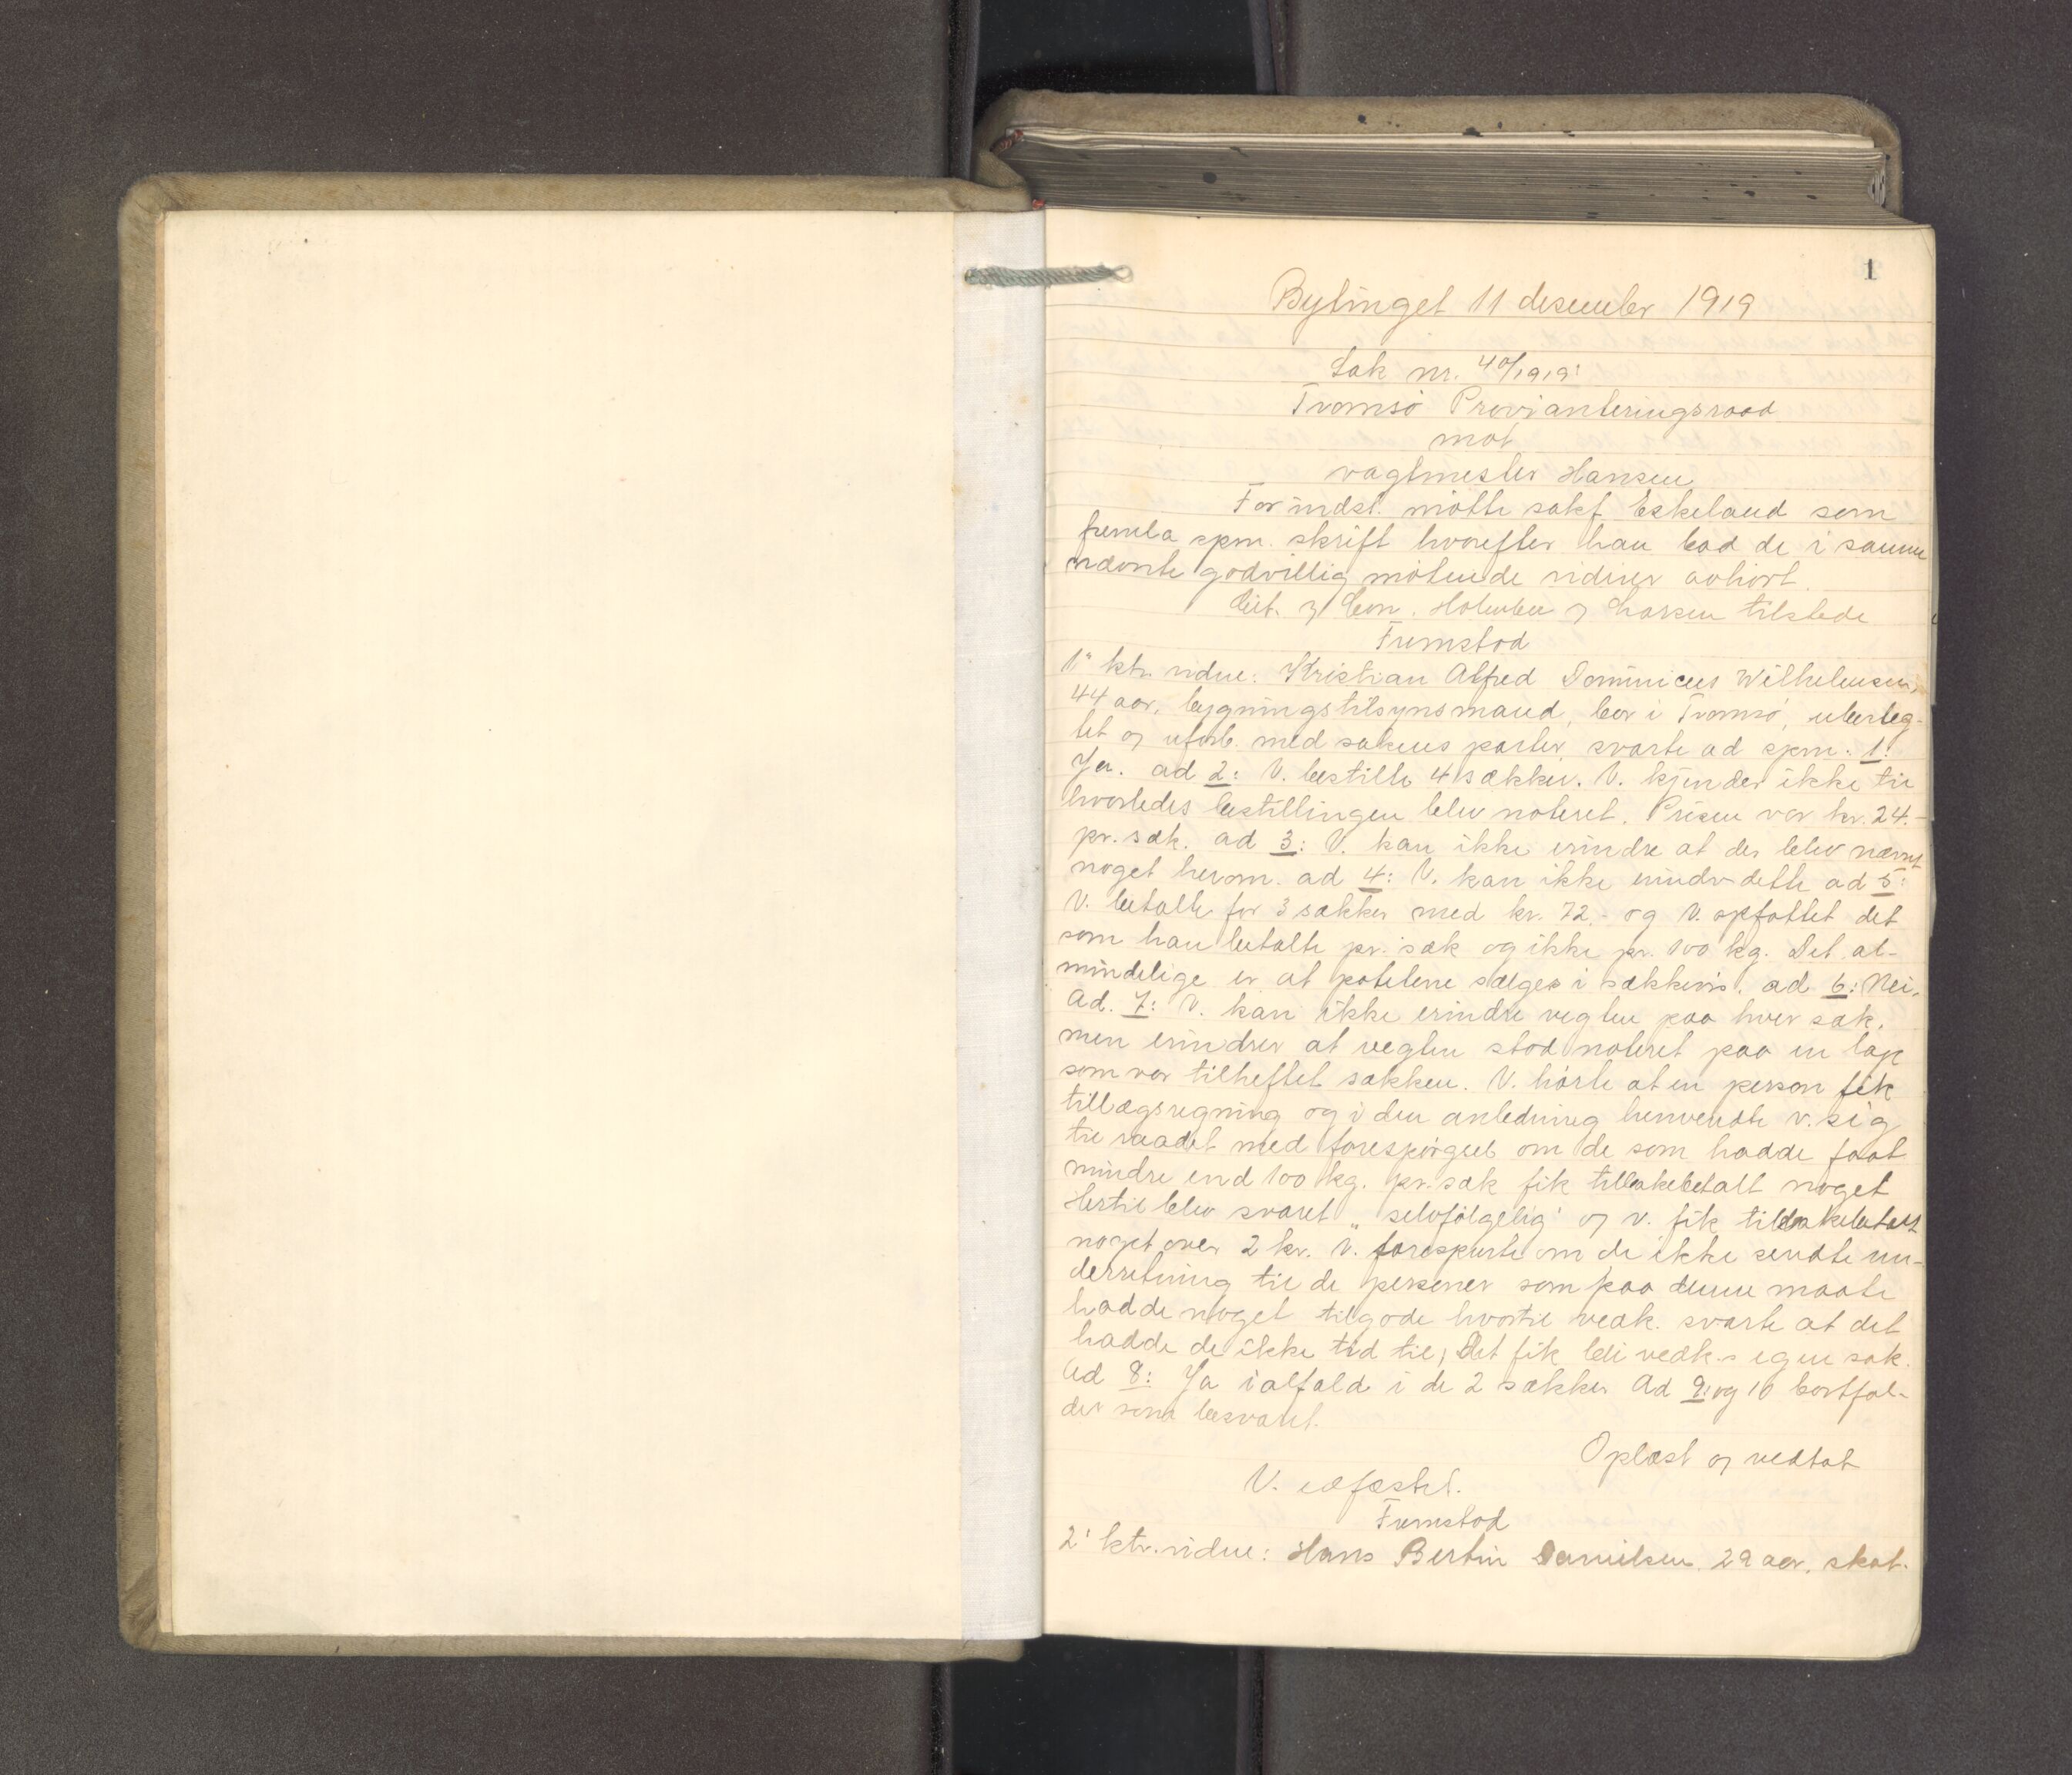 1
Bytinget 11 desember 1919
Sak nr. 40/1919:
Tromsø Provianteringsraad
mot
vagtmester Hansen
For indst. møtte sakf. Eskeland som
fremla spm. skrift hvorefter han bad de i samme
nævnte godvillig møtende vidner avhørt.
Cit. og Con. Holmboe og Larsen tilstede
Fremstod
1' ktr. vidne: Kristian Alfred Dominicus Wilhelmsen,
44 aar, bygningstilsynsmand, bor i Tromsø, uberyg-
tet og uforb. med sakens parter svarte ad spm. 1:
Ja. ad 2: V. bestilte 4 sækker. V. kjender ikke til
hvorledes bestillingen blev noteret. Prisen var kr. 24.-
pr. sæk. ad 3: V. kan ikke erindre at der blev nævnt
noget herom. ad 4: V. kan ikke erindre dette ad 5:
V. betalte for 3 sækker med kr. 72.- og V. opfattet det
som han betalte pr. sæk og ikke pr. 100 kg. Det al-
mindelige er at potetene sælges i sækkevis. ad 6: Nei.
Ad. 7: V. kan ikke erindre vegten paa hver sæk,
men erindrer at vegten stod noteret paa en lap
som var tilheftet sækken. V. hørte at en person fik
tillægsregning og i den anledning henvendte v. sig
til raadet med forespørgsel om de som hadde faat
mindre end 100 kg. pr. sæk fik tilbakebetalt noget
Hertil blev svaret „selvfølgelig" og v. fik tilbakebetalt
noget over 2 kr. V. forespurte om de ikke sendte un-
derretning til de personer som paa denne maate
hadde noget tilgode hvortil vedk. svarte at det
hadde de ikke tid til, Det fik bli vedk.s egen sak.
Ad 8: Ja ialfald i de 2 sækker Ad 9: og 10 bortfal-
der som besvaret.
Oplæst og vedtat
V. edfæstet.
Fremstod
2' ktr. vidne: Hans Bertin Danielsen, 29 aar, skat-